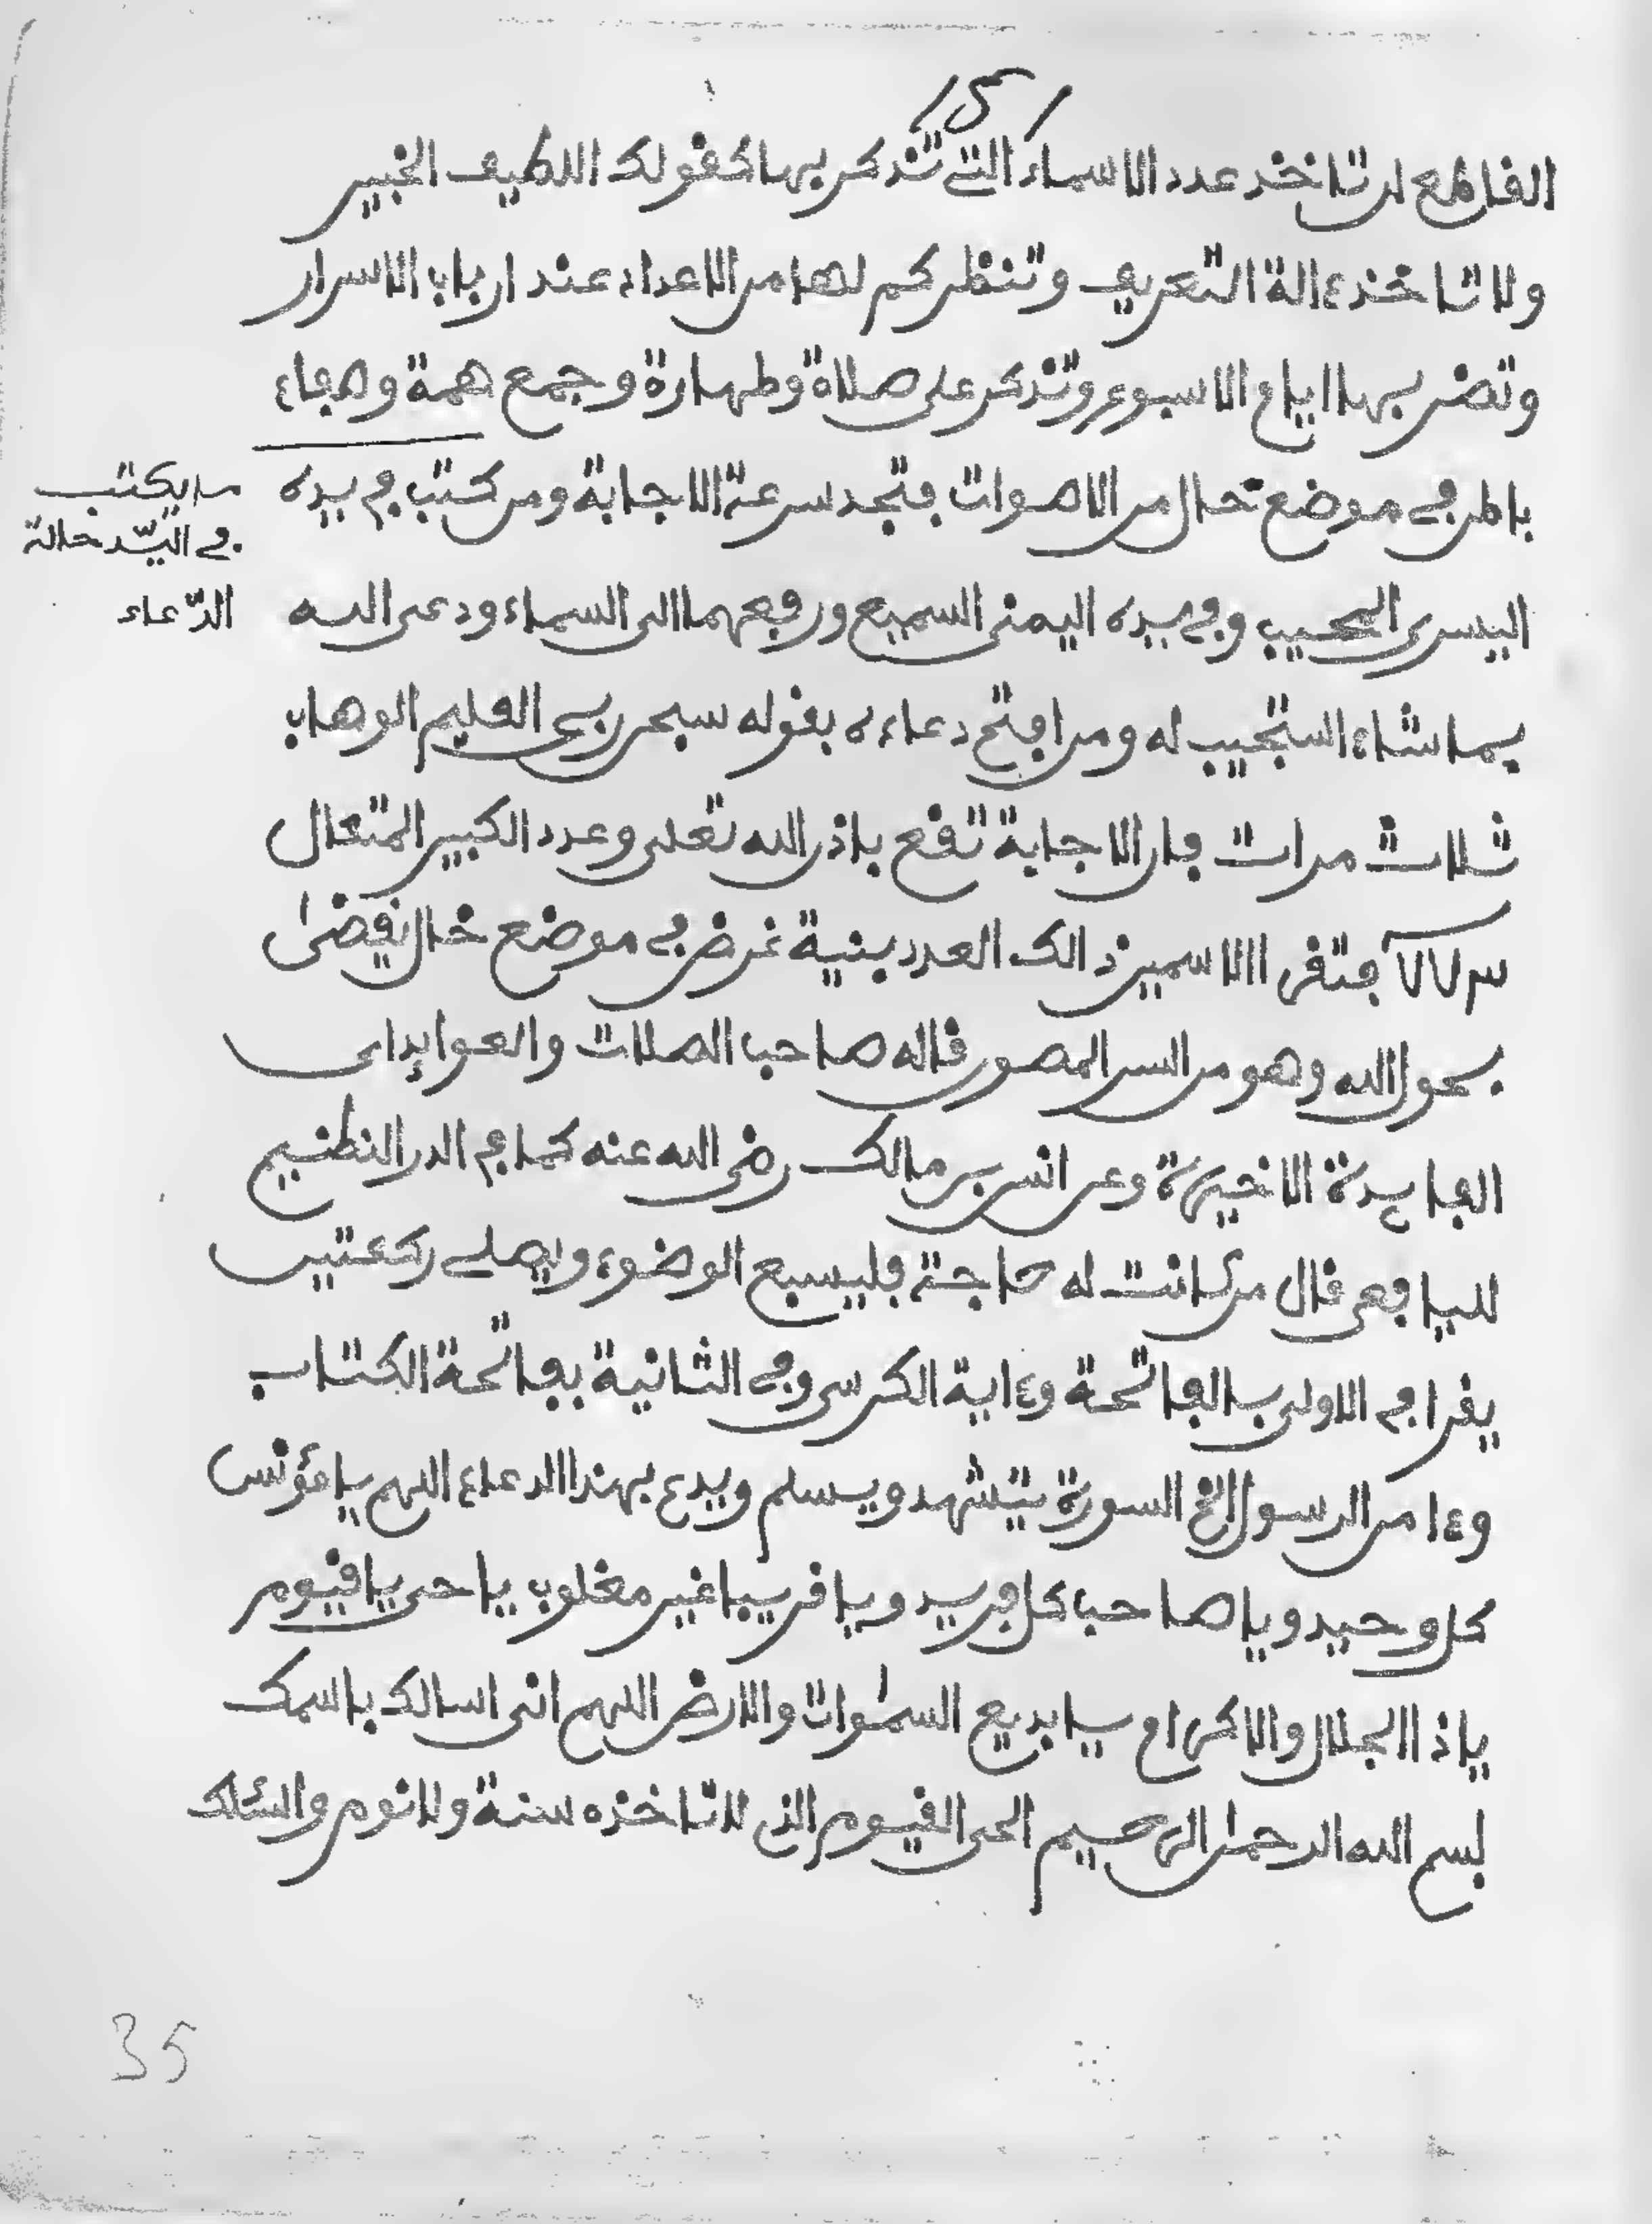 القاطع ان تاخذ عدد الاسماء التى تذكر بها كقولك اللطيف الخبير
ولا تاخذ ءالة التعريف وتنظر كم لها من الاعداد عند ارباب الاسرار
وتضر بها ايام الاسبوع وتذكر على صلاة وطهارة وجمع همة وصفاء
باطن في موضع خال من الاصوات فتجد سرعة الاجابة ومن كتب في يده
ما يكتب
في اليد حالة
الدّعاء
اليسرى المجيب وفي يده اليمنى السميع ورفعهما الى السماء ودعى الله
بما شاء استجيب له ومن افتح دعاءه بقوله سبحن ربي العليم الوهاب
ثلاث مرات فان الاجابة تقع باذن الله تعلى وعدد الكبير المتعال
٧٧٣ فتقرا الاسمين ذالك العدد بنية غرض في موضع خال يقضى
بحول الله وهو من السر المصور قاله صاحب الصلات والعوايد اى
الفايدة الاخيرة وعن انس بن مالك رضى الله عنه كما في الدر النظيم
لليافعى قال من كانت له حاجة فليسبع الوضوء ويصلى ركعتين
يقرا في الاولى بالفاتحة وءاية الكرسى وفي الثانية بفاتحة الكتاب
وءامن الرسول الخ السورة يتشهد ويسلم ويدع بهذا الدعاء اللهم يا مؤنس
كل وحيد ويا صاحب كل فريد ويا قريبا غير مغلوب يا حى يا قيوم
ياذا الجلال والاكرام يا بديع السموات والارض اللهم انى اسالك باسمك
بسم الله الرحمن الرحيم الحى القيوم الذى لا تاخذه سنة ولا نوم واسئلك
35